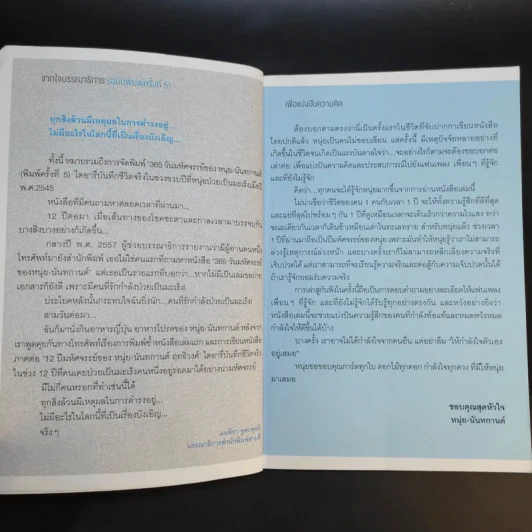 จากใจบรรณาธิการ (ฉบับพิมพ์ครั้งที่ 5)
ทุกสิ่งล้วนมีเหตุผลในการดำรงอยู่
ไม่มีอะไรในโลกนี้ที่เป็นเรื่องบังเอิญ...
ทั้งนี้ หมายรวมถึงการจัดพิมพ์ '365 วันมหัศจรรย์ของ หนุ่ย-นันทกานต์'
(พิมพ์ครั้งที่ 5) ไดอารี่บันทึกชีวิตจริงในช่วงขวบปีที่หนุ่ยป่วยเป็นมะเร็งเมื่อปี
พ.ศ.2545
หนังสือที่มีคนถามหาตลอดเวลาที่ผ่านมา...
12 ปีต่อมา เมื่อเส้นทางของโชคชะตาและกาลเวลามาบรรจบกัน
บางสิ่งบางอย่างก็เกิดขึ้น...
กลางปี พ.ศ. 2557 ผู้ช่วยบรรณาธิการรายงานว่ามีผู้อ่านคนหนึ่ง
โทรศัพท์มายังสำนักพิมพ์ เธอไม่ใช่คนแรกที่ถามหาหนังสือ '365 วันมหัศจรรย์
ของหนุ่ย-นันทกานต์' แต่เธอเป็นรายแรกที่บอกว่า...หากไม่มีเป็นเล่มขอถ่าย
เอกสารก็ยังดี เพราะมีคนที่รักกำลังป่วยเป็นมะเร็ง!
ประโยคหลังนั้นกระทบใจฉันยิ่งนัก...คนที่รักกำลังป่วยเป็นมะเร็ง
สามวันต่อมา...
ฉันก็มานั่งกินอาหารญี่ปุ่น อาหารโปรดของ หนุ่ย-นันทกานต์ หลังจาก
เราพูดคุยกันทางโทรศัพท์เรื่องการพิมพ์ซ้ำหนังสือเล่มแรก และการเขียนหนังสือ
ภาคต่อ '12 ปีมหัศจรรย์ของ หนุ่ย-นันทกานต์ ฤทธิวงศ์' ไดอารี่บันทึกชีวิตจริง
ในช่วง 12 ปีที่คนเคยป่วยเป็นมะเร็งคนหนึ่งอยู่รอดมาได้อย่างน่ามหัศจรรย์
มีไม่กี่คนหรอกที่ทำเช่นนี้ได้
ทุกสิ่งล้วนมีเหตุผลในการดำรงอยู่...
ไม่มีอะไรในโลกนี้ที่เป็นเรื่องบังเอิญ...
จริงๆ
บรรณาธิการสำนักพิมพ์
เพื่อแบ่งปันความคิด
ต้องบอกตามตรงว่านี่เป็นครั้งแรกในชีวิตที่จับปากกาเขียนหนังสือ
โดยปกติแล้ว หนุ่ยเป็นคนไม่ชอบเขียน แต่ครั้งนี้ มีเหตุปัจจัยหลายอย่างที่
เกิดขึ้นในชีวิตจนเกิดเป็นแรงบันดาลใจว่า...จะอย่างไรก็ตามจะต้องขอบอกต่อ
เล่าต่อ เพื่อแบ่งปันความคิดและประสบการณ์ไปยังแฟนเพลง เพื่อนๆ ที่รู้จัก
และที่ยังไม่รู้จัก
คิดว่า...ทุกคนจะได้รู้จักหนุ่ยมากขึ้นจากการอ่านหนังสือเล่มนี้
ไม่น่าเชื่อว่าชีวิตของคน 1 คนกับเวลา 1 ปี จะให้ทั้งความรู้สึกที่ดีที่สุด
และแย่ที่สุดไปพร้อมๆ กัน 1 ปีที่ดูเหมือนเวลาจะเดินเร็วกว่าความไวแสง ทว่า
ขณะเดียวกันเวลาก็เดินช้าเหมือนเต่าในระยะหลาย สำหรับหนุ่ยแล้ว ช่วงเวลา
1 ปีที่ผ่านมาถือเป็นปีมหัศจรรย์ของหนุ่ย เพราะมันทำให้หนุ่ยรู้ว่าเราไม่สามารถ
ล่วงรู้เหตุการณ์ล่วงหน้า และบางครั้งเราก็ไม่สามารถหลีกเลี่ยงความจริงที่
เจ็บปวดได้ แต่เราสามารถที่จะเรียนรู้ความจริงและต่อสู้กับความเจ็บปวดนั้นได้
ถ้าเรารู้จักยอมรับความจริง
การเล่าสู่กันฟังในครั้งนี้ถือเป็นการตอบคำถามอย่างละเอียดให้แก่แฟนเพลง
เพื่อนๆ ที่รู้จัก และที่ยังไม่รู้จักได้รับรู้ทุกอย่างตรงกัน และหวังอย่างยิ่งว่า
หนังสือเล่มนี้จะช่วยแบ่งปันความรู้สึกของคนที่กำลังท้อแท้และหมดหวังหมด
กำลังใจให้ดีขึ้นได้บ้าง
บางครั้ง เราอาจไม่ได้กำลังใจจากคนอื่น แต่อย่าลืม "ให้กำลังใจตัวเอง
อยู่เสมอ"
หนุ่ยขอขอบคุณการ์ดทุกใบ ดอกไม้ทุกดอก กำลังใจทุกดวง ที่มีให้หนุ่ย
มาเสมอ
ขอบคุณสุดหัวใจ
หนุ่ย-นันทกานต์